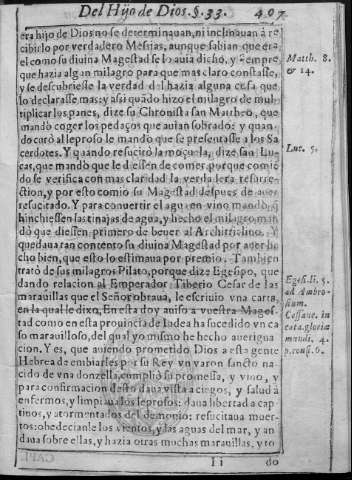 Del Hijo de Dios. §. 33. 407
era hijo de Dios no se determinauan, ni inclinauan à re
cibirlo por verdadero Mesias, aunque sabian que era
el como su diuina Magestad se lo auia dicho, y siempre
que hazia algun milagro para que mas claro constasse,
y se descubriesse la verdad del hazia alguna cosa que
lo declarasse mas: y asi quãdo hizo el milagro de mul-
tiplicar los panes, dize su Chronista san Mattheo, que
mandò coger los pedaços que auian sobrado: y quan-
do curò al leproso le mandò que se presentasse a los Sa
cerdotes. Y quando resucitò la moçuela, dize san Lu-
cas, que mandò que le diessen de comer, porque comiẽ
do se verifica con mas claridad la verdadera resurre-
ction, y por esto comio su Magestad despues de auer
resucitado. Y para conuertir el agua en vino mandò, q̃
hinchiessen las tinajas de agua, y hecho el milagro man
dò que diessen primero de beuer al Architriclino. Y
quedaua tan contento su diuina Magestad por auer he
cho bien, que esto lo estimaua por premio. Tambien
tratò de sus milagros Pilato, porque dize Egesipo, que
dando relacion al Emperador Tiberio Cesar de las
marauillas que el Señor obraua, le escriuio vna carta,
en la qual le dixo, En esta doy auiso a vuestra Mages-
tad como en esta prouincia de Iudea ha sucedido vn ca
so marauilloso, del qual yo mismo he hecho auerigua
cion. Y es, que auiendo prometido Dios a esta gente
Hebrea de embiarles por su Rey vn varon sancto na-
cido de vna donzella, cumpliò su promessa, y vino, y
para confirmacion desto daua vista a ciegos, y salud à
enfermos, y limpiaua los leprosos: daua libertad a cap
tinos, y atormentados del demonio: resucitaua muer-
tos: obedecianle los vientos, y las aguas del mar, y an
daua sobre ellas, y hazia otras muchas marauillas, y to
Ii do
Matth. 8.
& 14.
Luc. 5.
Eges. li. 5.
ad Ambro-
sium.
Cassane. in
cata. gloria
mundi. 4.
p. consi. 6.